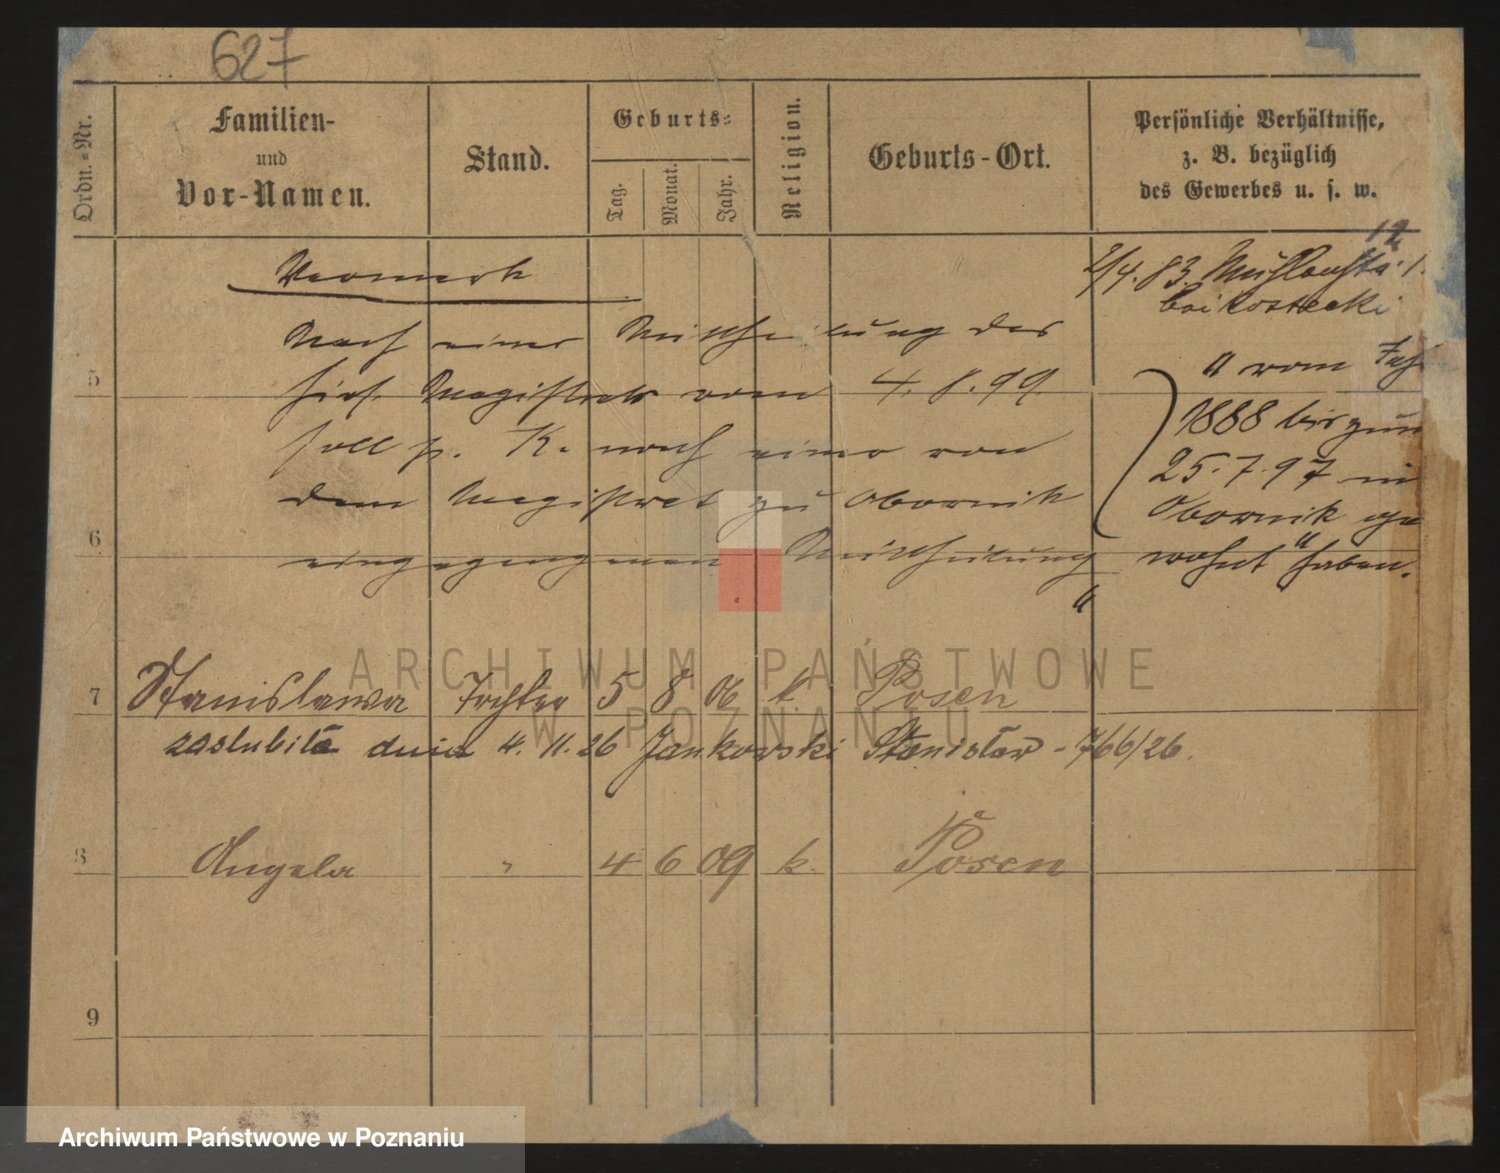 627
Ordn.-Nr.
Familien-
und
Vor-Namen.
Stand.
Geburts-
Tag.
Monat.
Jahr.
Religion.
Geburts-Ort.
Persönliche Verhältnisse,
z. B. bezüglich
des Gewerbes u. s. w.
Vermerk
Nach einer Mittheilung des
hies. Magistrats vom 4. 8. 99.
soll p. K. nach einer von
dem Magistrat zu Obornik
eingegangenen Mittheilung
2/4. 83.
bei Kostecki
" vom
1888 bis zum
25. 7. 97 in
Obornik ge
wohnt haben.
5
6
7 Stanislawa Tochter 5 8 06 k. Posen
zaslubiła dnia 4. 11. 26 Jankowski Stanisław - 766/26.
8 Angela " 4 6 09 k. Posen
9
ARCHIWUM PAŃSTWOWE
W POZNANIU
Archiwum Państwowe w Poznaniu